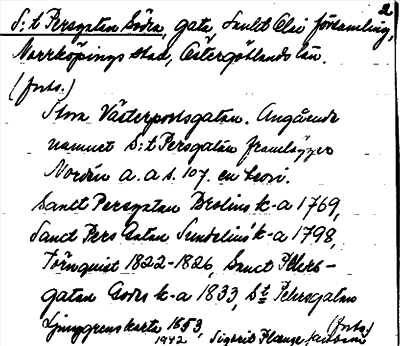 2
S:t Persgatan Södra, gata, Sankt Olai församling,
Norrköpings stad, Östergötlands län.
(forts.)
Stora Västerportsgatan. Angående
namnet S:t Persgatan framlägger
Nordén a. a s. 107. en teori.
Sanct Persgatan Brolins k-a 1769,
Sanct Pers Gatan Sundelius k-a 1798,
Törnquist 1822-1826, Sanct Peters-
gatan Gods k-a 1833, St Petersgatan
Ljunggrens karta 1853,
(forts.)
1942 Sigbrit Plænge Jacobson